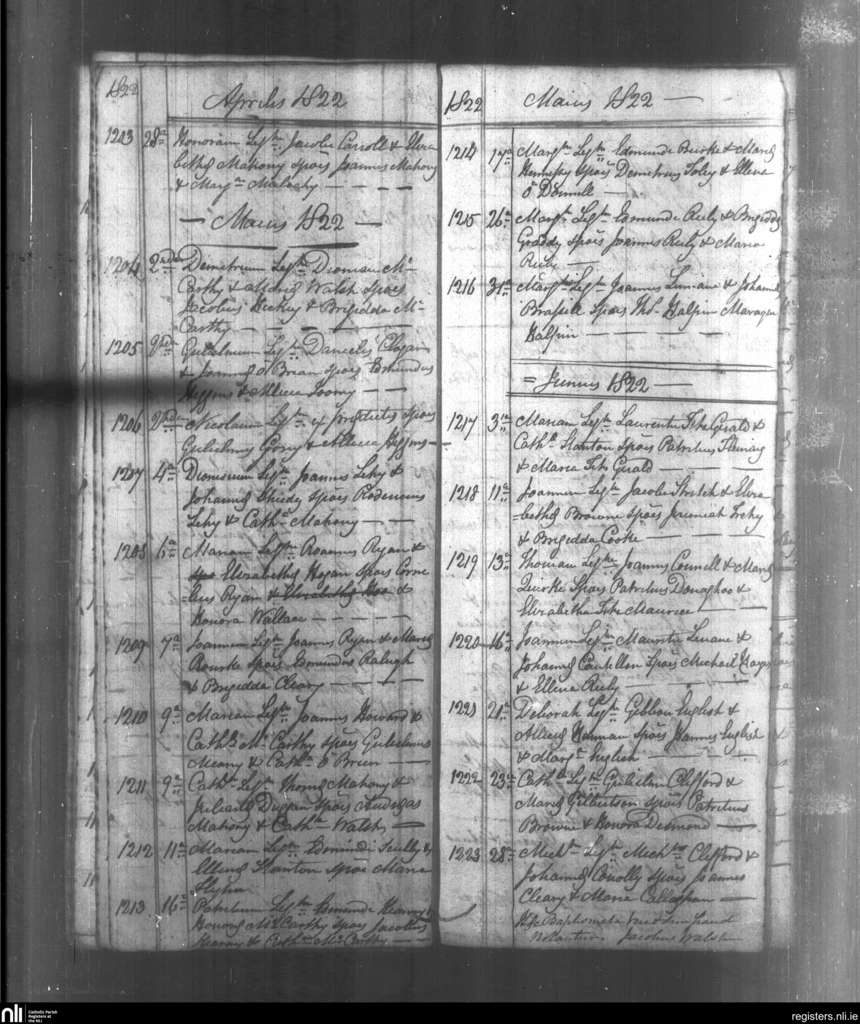 1822
Aprilis 1822
1203 28a Honoram Legtm Jacobi Carroll & Eliza
bethæ Mahony spois Joannes Mahony
& Margta
— Maius 1822 —
1204 2nda Demetrium Legtm Dionisii Mc
Carthy & Mariæ Walsh spois
Jacobus Hickey & Brigidda Mc
Carthy
1205 2nda Gulielmum Legtm Danielis
& Joannæ O Brian spois Edmundus
Higgins & Allicia Toomy
1206 2nda Nicolaum Legtm ex prædictis spois
Gulielmus & Allicia Higgins
1207 4a Dionisium Legtm Joannis Lehy &
Johannæ spois
Lehy & Cathna Mahony
1208 6a Mariam Legtm Ryan &
Elizabethæ Hogan spois Corne
lius Ryan &
Honora Wallace
1209 7a Joannem Legtm Joannis Ryan & Mariæ
Rourke spois Edmundus Raleigh
& Brigidda Cleary
1210 9a Mariam Legtm Joannis Howard &
Cathæ McCarthy spois Gulielmus
Meany & Cathna O Brien
1211 9a Cathm Legtm Thomæ Mahony &
Julianæ Duggan spois
Mahony & Cathna Walsh
1212 11a Mariam Legtm Edmundi Scully &
Ellenæ Stanton spois Maria
1213 16a Patritium Legtm Edmundi Kearney &
Honoræ McCarthy spois Jacobus
Kearney & Cathna McCarthy
1822 Maius 1822 —
1214 17a Margtm Legtm Edmundi Burke & Mariæ
Hennessy spois Demetrius Foley & Ellena
O Donnell
1215 26a Margtm Legtm Edmundi Riely & Brigiddæ
Graddy spois Joannes Riely & Maria
Riely
1216 31a Margtm Legtm Joannis & Johannæ
spois Ths Halpin
Halpin
= Junius 1822 —
1217 3tia Mariam Legtm Laurentii Fitz Gerald &
Cathæ Stanton spois Patritius Fleming
& Maria Fitz Gerald
1218 11a Joannem Legtm Jacobi Stritch & Eliza
=bethæ Browne spois Jeremiah
& Brigidda Cooke
1219 13a Thomam Legtm Joannis Connell & Mariæ
Quirke spois Patritius Donaghoo &
Elizabetha Fitz Maurice
1220 16a Joannem Legtm Mauritii Lenane &
Johannæ Cantillon spois Michael Hayes
& Ellena Riely
1221 21a Deborah Legtm Gibbon English &
Alliciæ spois Joannes English
& Margta English
1222 23a Cathm Legtm Gulielmi Clifford &
Mariæ Gilbertson spois Patritius
Browne & Honora Desmond
1223 28a Michl Legtm Michlis Clifford &
Johannæ Conolly spois Joannes
Cleary & Maria Callaghan
Jacobus Walsh
nli
Catholic Parish
Registers at
the NLI
registers.nli.ie